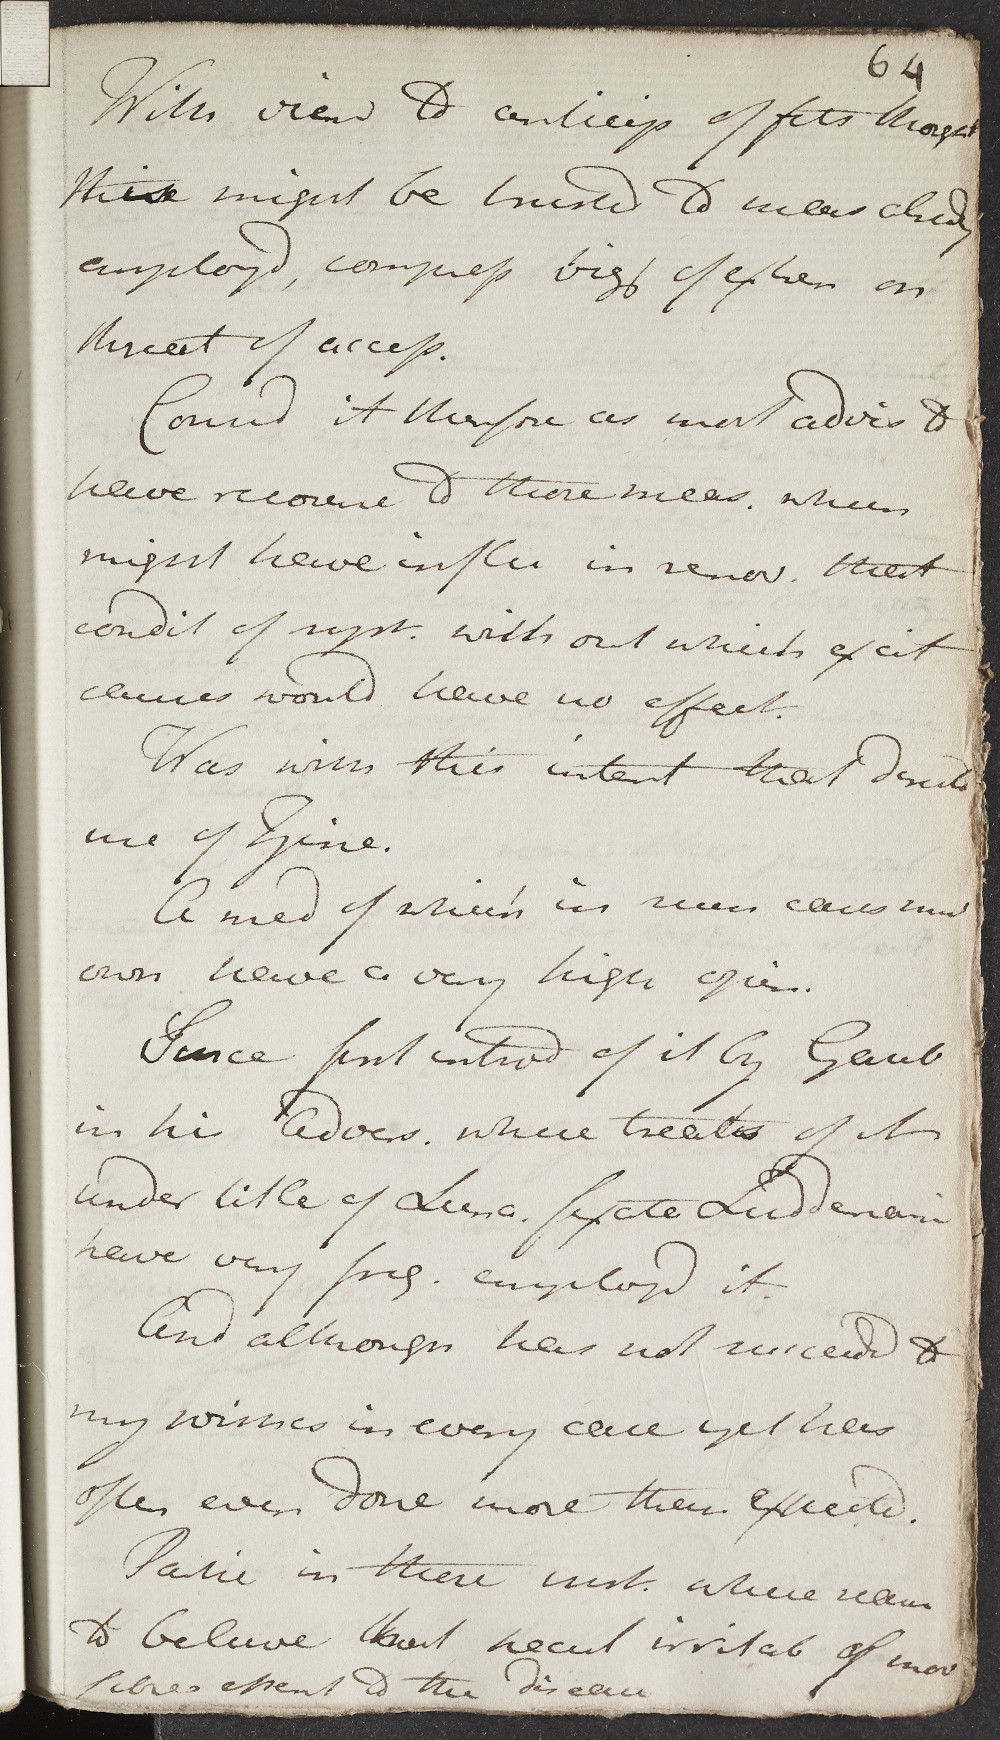 64
With view to anticip of fits thought
these might be trusted to meas alredy
employd, compress bigg of ether on
threat of access.
Consid it therfore as most advis to
have recourse to those meas. which
might have influ in remov. that
condit of syst. without which excit
causes would have no effect.
Was with this intent that directd
use of Zinc.
A med of which in such cases must
own have a very high opin.
Since first introd of it by Gaub
in his Advers. where treats of it
under title of Luna. fixata Luddemani
have very freq. employd it.
And although has not succeedd to
my wishes in every case yet has
often even done more than expectd.
Partic in those inst. where reason
to believe that pecul irritab of mov
fibres essent to the disease